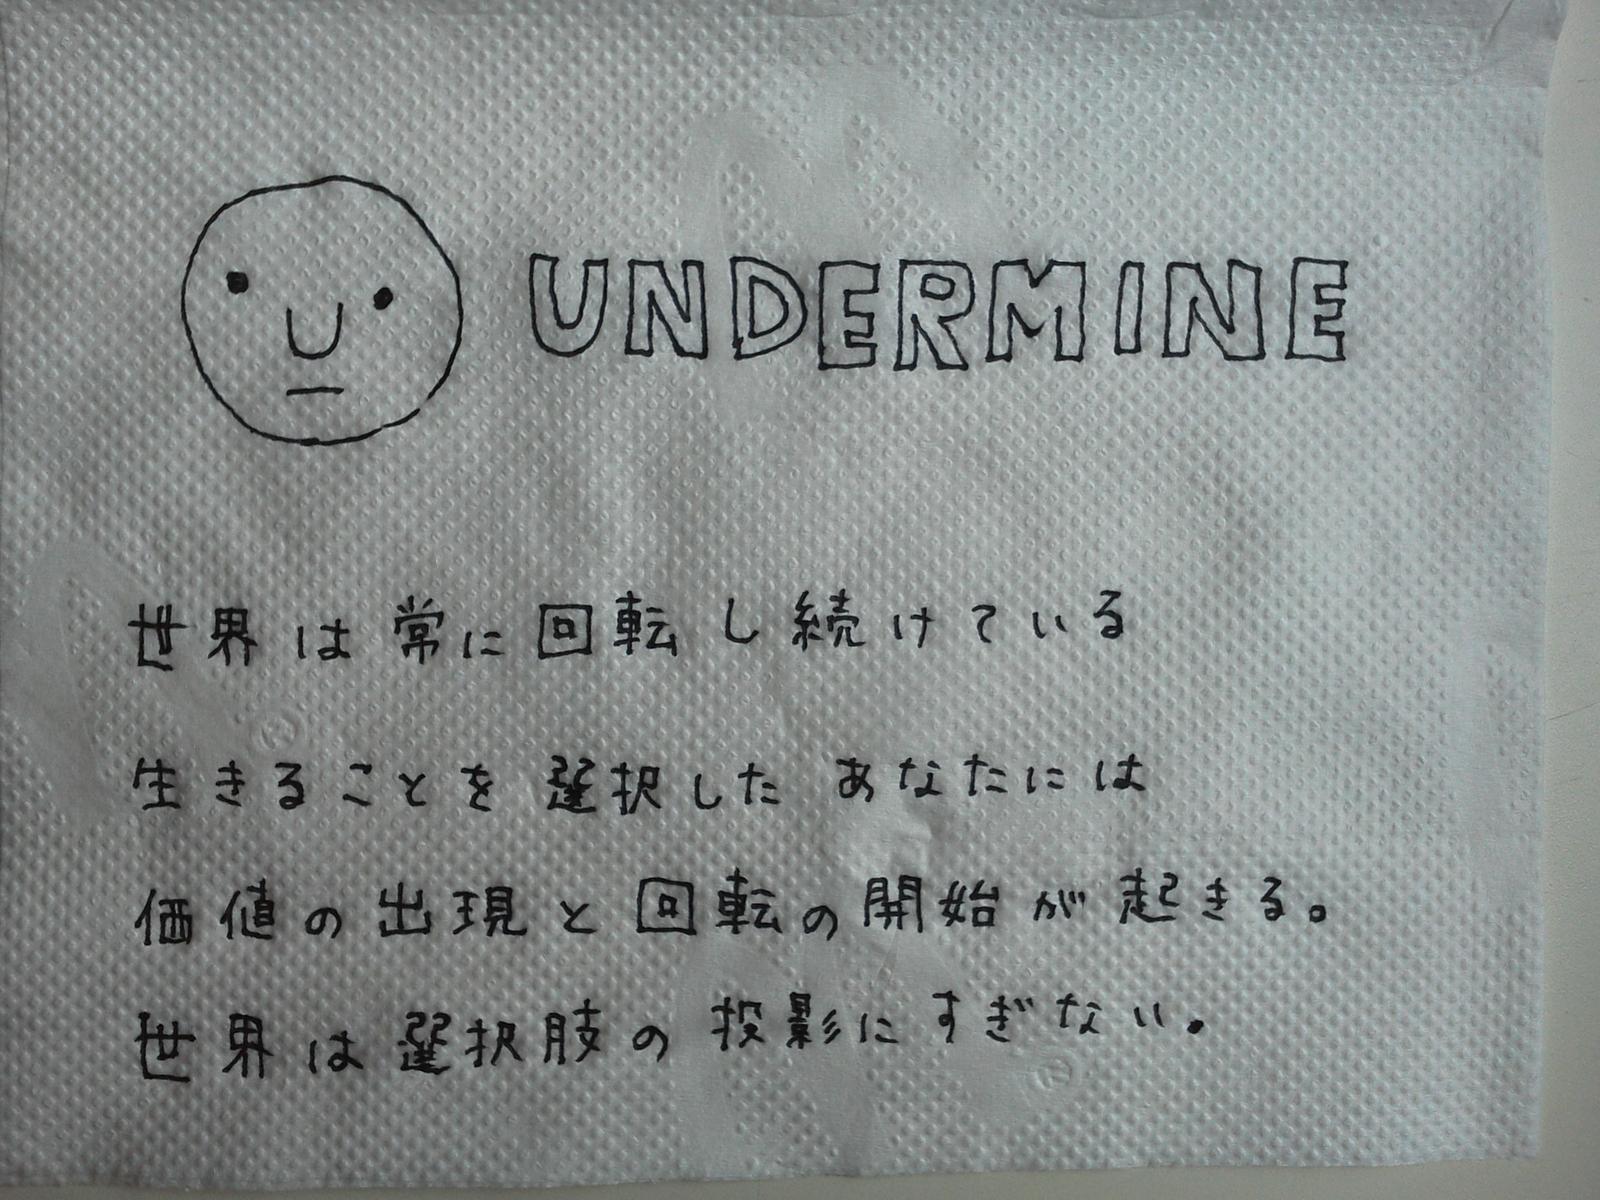 UNDERMINE
世界は常に回転し続けている
生きることを選択したあなたには
価値の出現と回転の開始が起きる。
世界は選択肢の投影にすぎない。